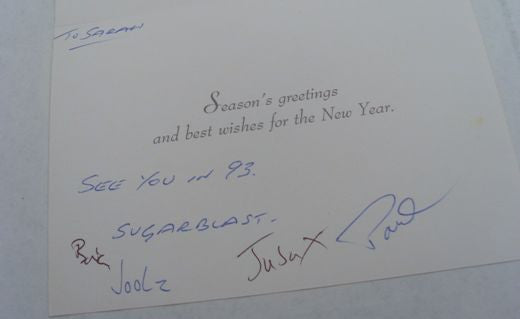 To SARAH
Season's greetings
and best wishes for the New Year.
SEE YOU IN 93.
SUGARBLAST.
Joolz
Paul